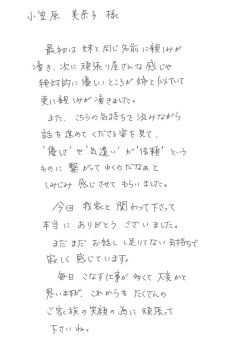 小笠原 美奈子 様
最初は妹と同じ名前に親しみが
湧き、次に頑張り屋さんな感じや
絶対的に優しいところが姉と似ていて
更に親しみが湧きました。
また、こちらの気持ちを汲みながら
話を進めてくださる姿を見て、
"優しさ"や"気遣い"が"信頼"という
ものに繋がってゆくのだなぁと
しみじみ感じさせてもらいました。
今回 我家と関わって下さって
本当にありがとうございました。
まだまだお話し足りない気持ちで
寂しく感じています。
毎日 こなす仕事が多くて大変かと
思いますが、これからもたくさんの
ご家族の笑顔の為に頑張って
下さいね。